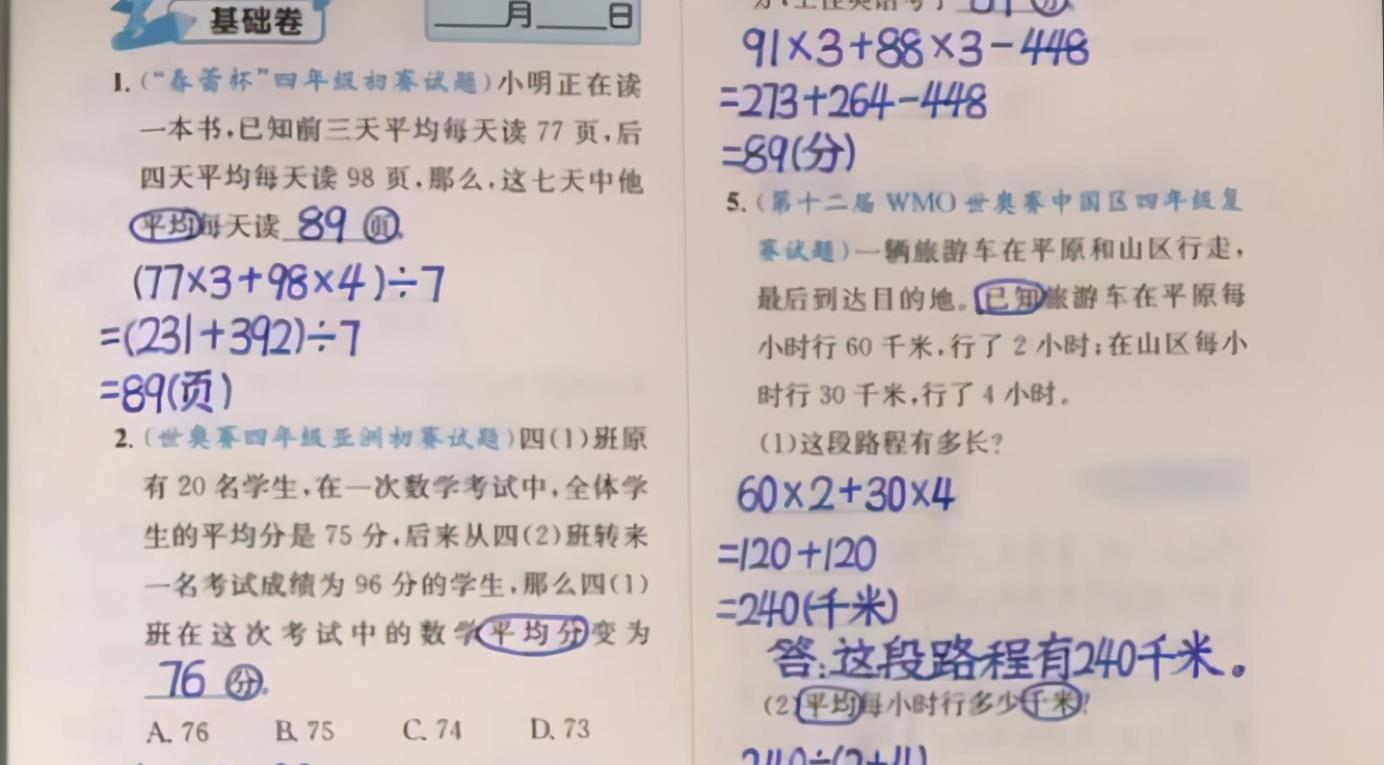 基础卷
____月____日
1.(“春蕾杯”四年级初赛试题)小明正在读
一本书,已知前三天平均每天读 77 页,后
四天平均每天读 98 页,那么,这七天中他
平均每天读 89 页.
(77×3+98×4)÷7
=(231+392)÷7
=89(页)
2.(世奥赛四年级亚洲初赛试题)四(1)班原
有 20 名学生,在一次数学考试中,全体学
生的平均分是 75 分,后来从四(2)班转来
一名考试成绩为 96 分的学生,那么四(1)
班在这次考试中的数学平均分变为
76 分.
A. 76 B. 75 C. 74 D. 73
91×3+88×3-448
=273+264-448
=89(分)
5.(第十二届 WMO 世奥赛中国区四年级复
赛试题)一辆旅游车在平原和山区行走,
最后到达目的地。已知旅游车在平原每
小时行 60 千米,行了 2 小时;在山区每小
时行 30 千米,行了 4 小时。
(1)这段路程有多长?
60×2+30×4
=120+120
=240(千米)
答:这段路程有240千米。
(2)平均每小时行多少千米?
240÷(2+4)